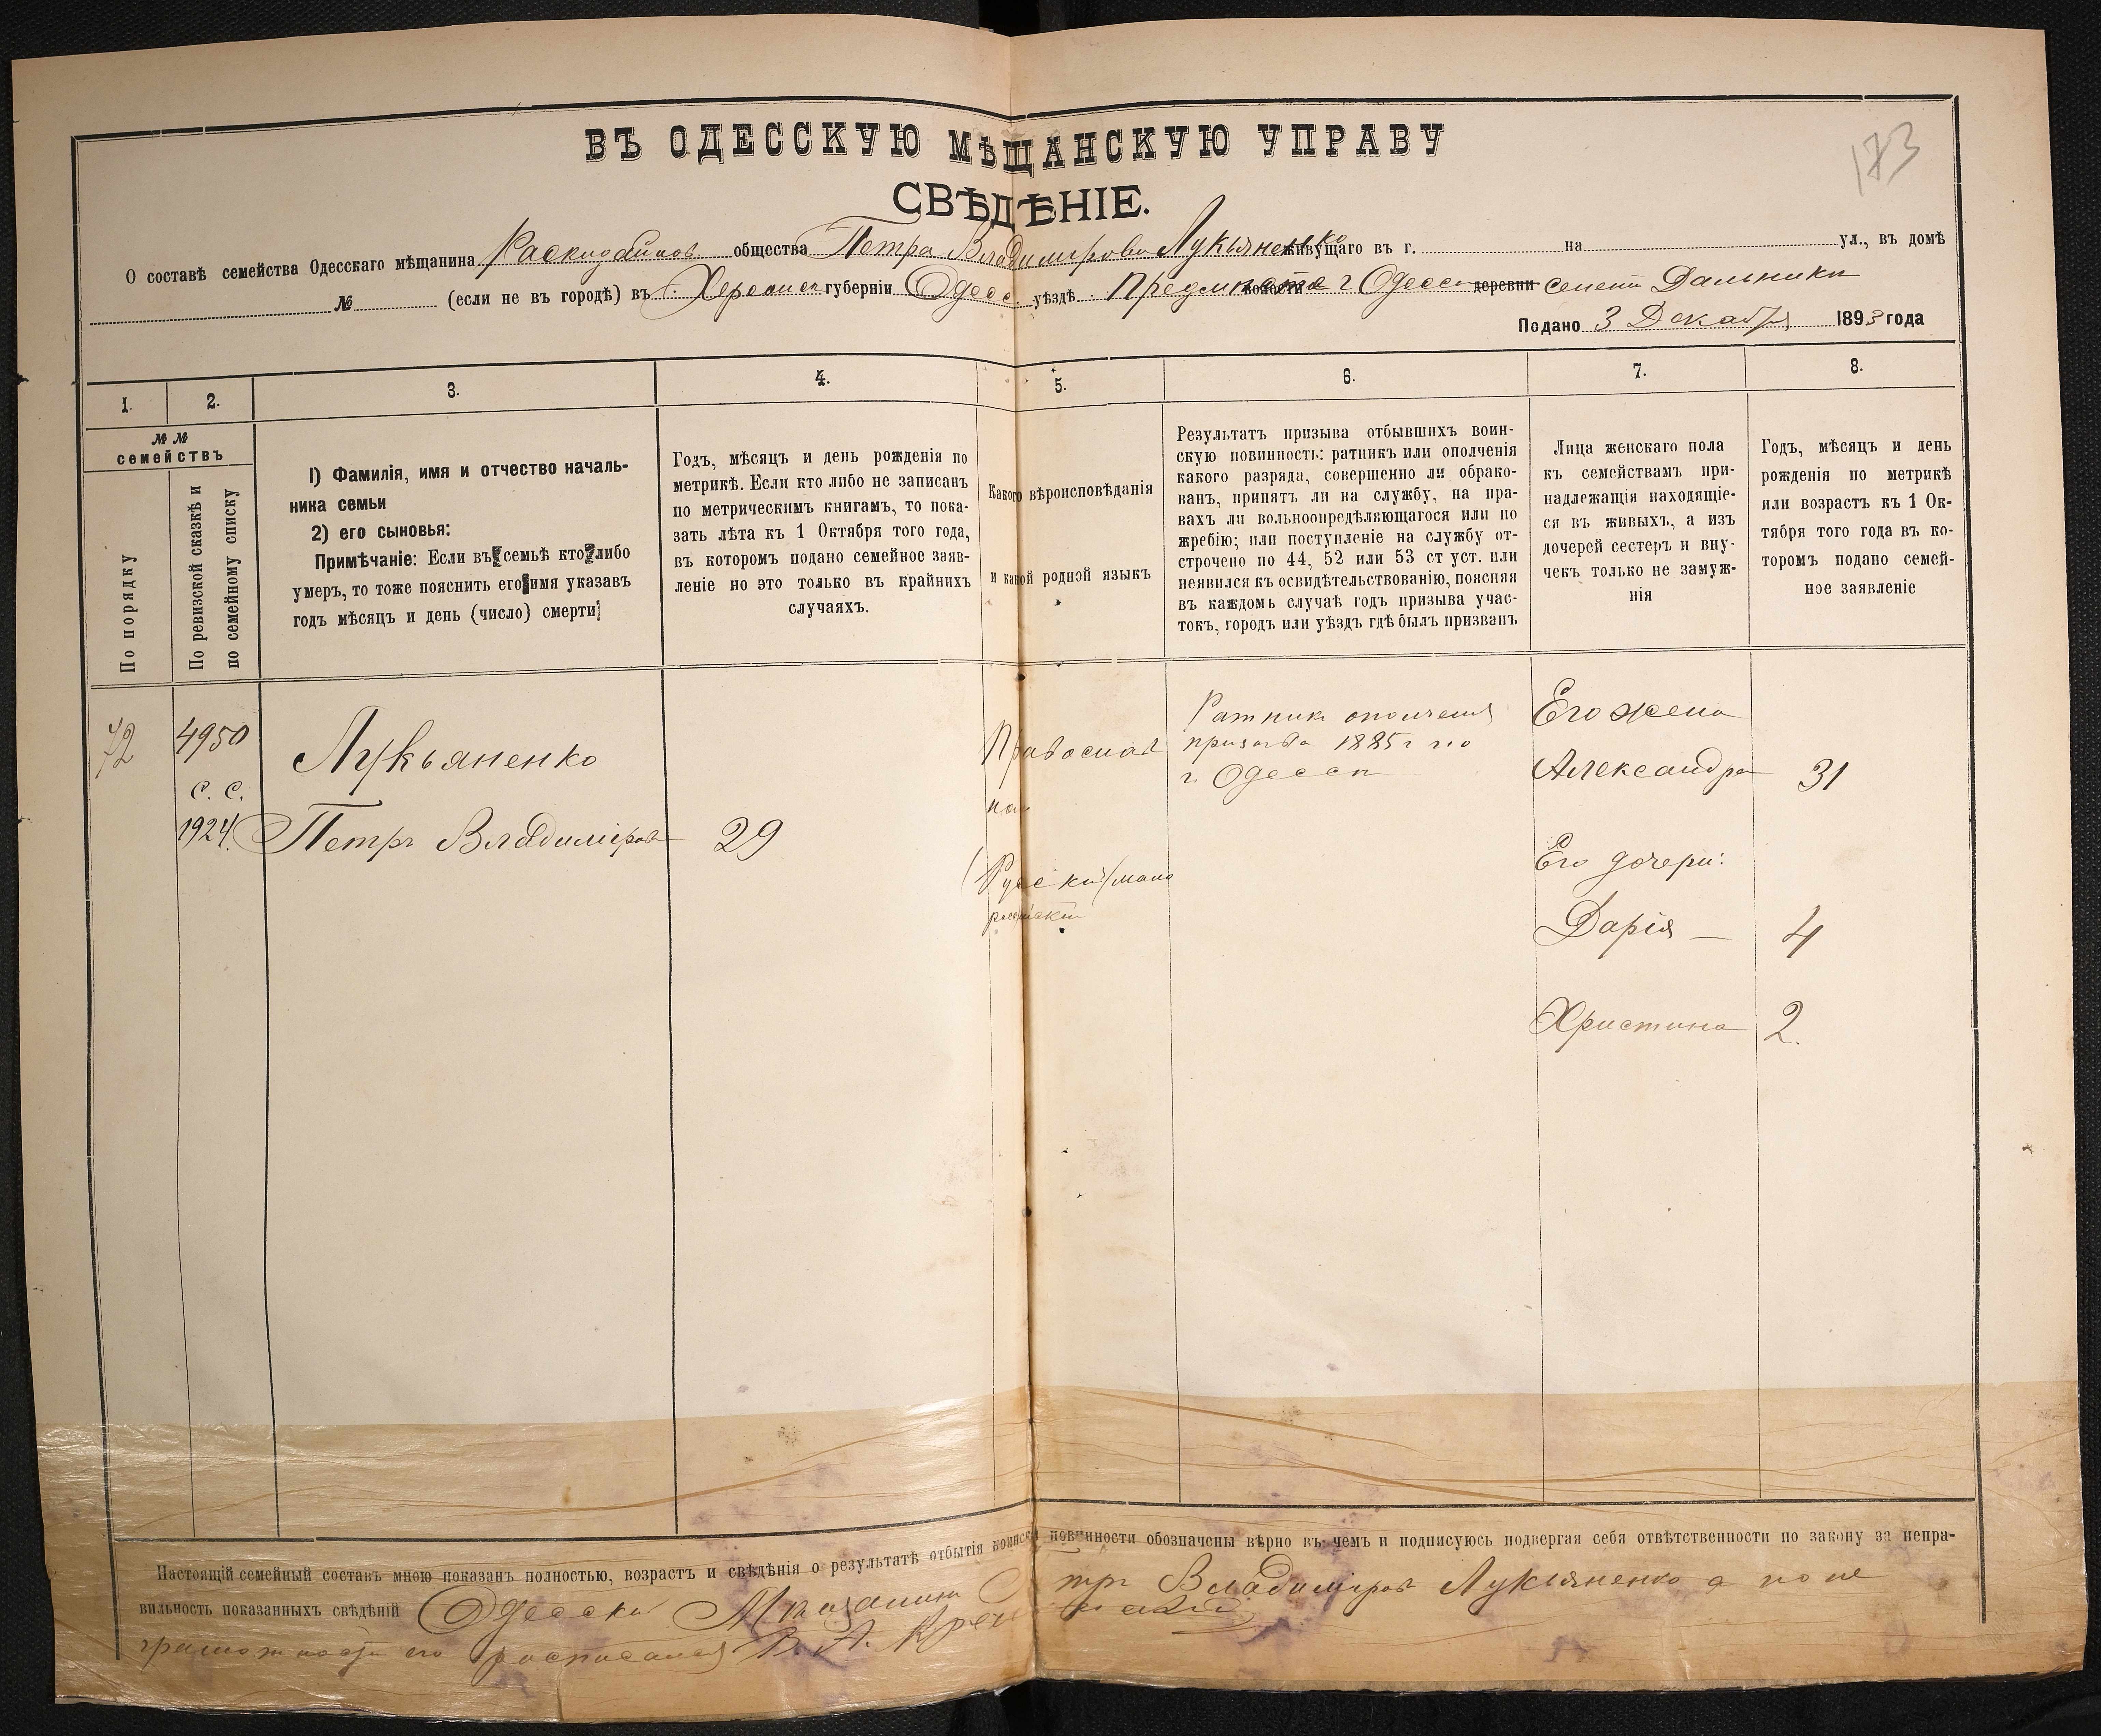 173
ВЪ ОДЕССКУЮ МѢЩАНСКУЮ УПРАВУ
СВѢДѢНІЕ.
О составѣ семейства Одесскаго мѣщанина общества Петра Владимірова Лукьяненко живущаго въ г. на ул., въ домѣ
№ (если не въ городѣ) въ Херсонск губерніи Одесс. уѣздѣ волости г Одессы деревни Дальники
Подано 3 Декабря 1893 года
1.
2.
3.
4.
5.
6.
7.
8.
№ №
семействъ
По порядку
По ревизской сказкѣ и
по семейному списку
1) Фамилія, имя и отчество началь-
ника семьи
2) его сыновья:
Примѣчаніе: Если въ семьѣ кто либо
умеръ, то тоже пояснить его имя указавъ
годъ мѣсяцъ и день (число) смерти
Годъ, мѣсяцъ и день рожденія по
метрикѣ. Если кто либо не записанъ
по метрическимъ книгамъ, то пока-
зать лѣта къ 1 Октября того года,
въ которомъ подано семейное заяв-
леніе но это только въ крайнихъ
случаяхъ.
Какого вѣроисповѣданія
и какой родной языкъ
Результатъ призыва отбывшихъ воин-
скую повинность: ратникъ или ополченія
какого разряда, совершенно ли обрако-
ванъ, принятъ ли на службу, на пра-
вахъ ли вольноопредѣляющагося или по
жребію; или поступленіе на службу от-
строчено по 44, 52 или 53 ст уст. или
неявился къ освидѣтельствованію, поясняя
въ каждомъ случаѣ годъ призыва учас-
токъ, городъ или уѣздъ гдѣ былъ призванъ
Лица женскаго пола
къ семействамъ при-
надлежащія находящіе-
ся въ живыхъ, а изъ
дочерей сестеръ и вну-
чекъ только не замуж-
нія
Годъ, мѣсяцъ и день
рожденія по метрикѣ
или возрастъ къ 1 Ок-
тября того года въ ко-
торомъ подано семей-
ное заявленіе
72
4950
с. с.
1924.
Лукьяненко
Петръ Владиміров
29
Православ
ная
Русскій (мало
россійскій
Ратник ополченія
призыва 1885 г по
г. Одессѣ
Его жена
Александра 31
Его дочери:
Дарія — 4
Христина 2.
Настоящій семейный составъ мною показанъ полностью, возрастъ и свѣдѣнія о результатѣ отбытія воинской повинности обозначены вѣрно въ чемъ и подписуюсь подвергая себя отвѣтственности по закону за непра-
вильность показанныхъ свѣдѣній Одесскій Мѣщанинъ Петръ Владиміров Лукьяненко а по не
грамотности его росписался В. А.